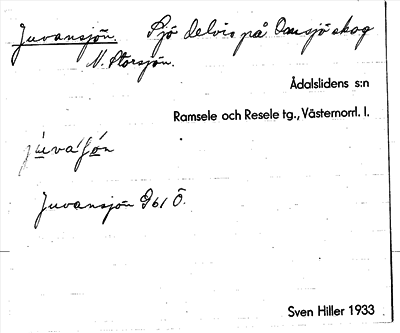 Juvansjön. Sjö delvis på Omsjö skog
N. Storsjön.
Ådalslidens s:n
Ramsele och Resele tg., Västernorrl. l.
Juvansjön 961 Ö.
Sven Hiller 1933